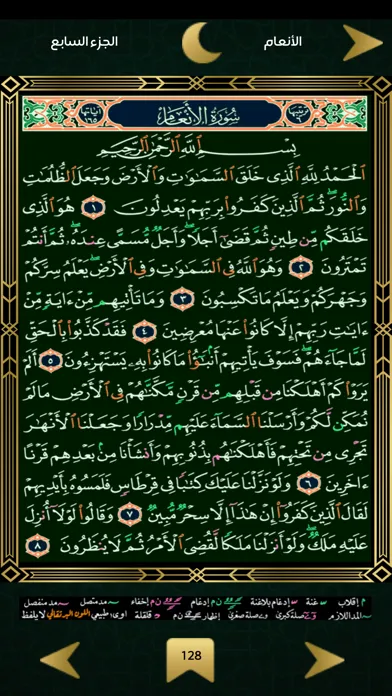 الأنعام
الجزء السابع
ترتيبها ٦
سُورَةُ الأَنْعَامِ
آياتها ١٦٥
بِسْمِ ٱللَّهِ ٱلرَّحْمَٰنِ ٱلرَّحِيمِ
ٱلْحَمْدُ لِلَّهِ ٱلَّذِى خَلَقَ ٱلسَّمَٰوَٰتِ وَٱلْأَرْضَ وَجَعَلَ ٱلظُّلُمَٰتِ
وَٱلنُّورَ ۖ ثُمَّ ٱلَّذِينَ كَفَرُوا۟ بِرَبِّهِمْ يَعْدِلُونَ ١ هُوَ ٱلَّذِى
خَلَقَكُم مِّن طِينٍ ثُمَّ قَضَىٰٓ أَجَلًا ۖ وَأَجَلٌ مُّسَمًّى عِندَهُۥ ۖ ثُمَّ أَنتُمْ
تَمْتَرُونَ ٢ وَهُوَ ٱللَّهُ فِى ٱلسَّمَٰوَٰتِ وَفِى ٱلْأَرْضِ ۖ يَعْلَمُ سِرَّكُمْ
وَجَهْرَكُمْ وَيَعْلَمُ مَا تَكْسِبُونَ ٣ وَمَا تَأْتِيهِم مِّنْ ءَايَةٍ مِّنْ
ءَايَٰتِ رَبِّهِمْ إِلَّا كَانُوا۟ عَنْهَا مُعْرِضِينَ ٤ فَقَدْ كَذَّبُوا۟ بِٱلْحَقِّ
لَمَّا جَآءَهُمْ ۖ فَسَوْفَ يَأْتِيهِمْ أَنۢبَٰٓؤُا۟ مَا كَانُوا۟ بِهِۦ يَسْتَهْزِءُونَ ٥ أَلَمْ
يَرَوْا۟ كَمْ أَهْلَكْنَا مِن قَبْلِهِم مِّن قَرْنٍ مَّكَّنَّٰهُمْ فِى ٱلْأَرْضِ مَا لَمْ
نُمَكِّن لَّكُمْ وَأَرْسَلْنَا ٱلسَّمَآءَ عَلَيْهِم مِّدْرَارًا وَجَعَلْنَا ٱلْأَنْهَٰرَ
تَجْرِى مِن تَحْتِهِمْ فَأَهْلَكْنَٰهُم بِذُنُوبِهِمْ وَأَنشَأْنَا مِنۢ بَعْدِهِمْ قَرْنًا
ءَاخَرِينَ ٦ وَلَوْ نَزَّلْنَا عَلَيْكَ كِتَٰبًا فِى قِرْطَاسٍ فَلَمَسُوهُ بِأَيْدِيهِمْ
لَقَالَ ٱلَّذِينَ كَفَرُوٓا۟ إِنْ هَٰذَآ إِلَّا سِحْرٌ مُّبِينٌ ٧ وَقَالُوا۟ لَوْلَآ أُنزِلَ
عَلَيْهِ مَلَكٌ ۖ وَلَوْ أَنزَلْنَا مَلَكًا لَّقُضِىَ ٱلْأَمْرُ ثُمَّ لَا يُنظَرُونَ ٨
م إقلاب غنة إدغام بلاغنة ن م إدغام ن م إخفاء مد متصل مد منفصل
المد اللازم صلة كبرى صلة صغرى إظهار ن م قلقلة اوى: طبيعي اللون البرتقالي لا يلفظ
128